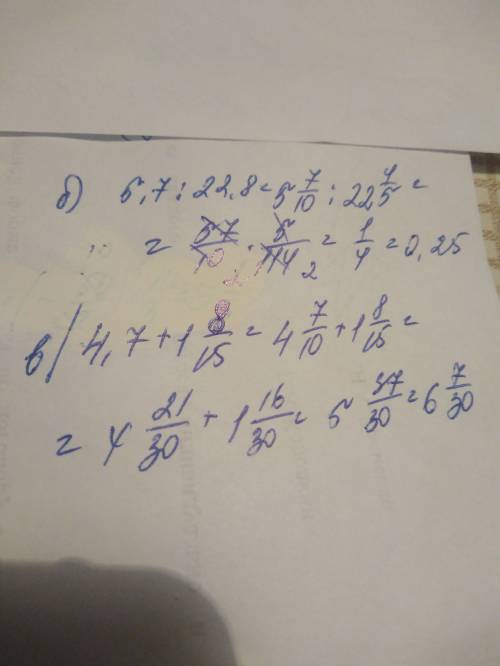 б) 5,7 : 22,8 = 5 7/10 : 22 4/5 =
= 57/10 · 5/114 = 1/4 = 0,25
в) 4,7 + 1 8/15 = 4 7/10 + 1 8/15 =
= 4 21/30 + 1 16/30 = 5 37/30 = 6 7/30